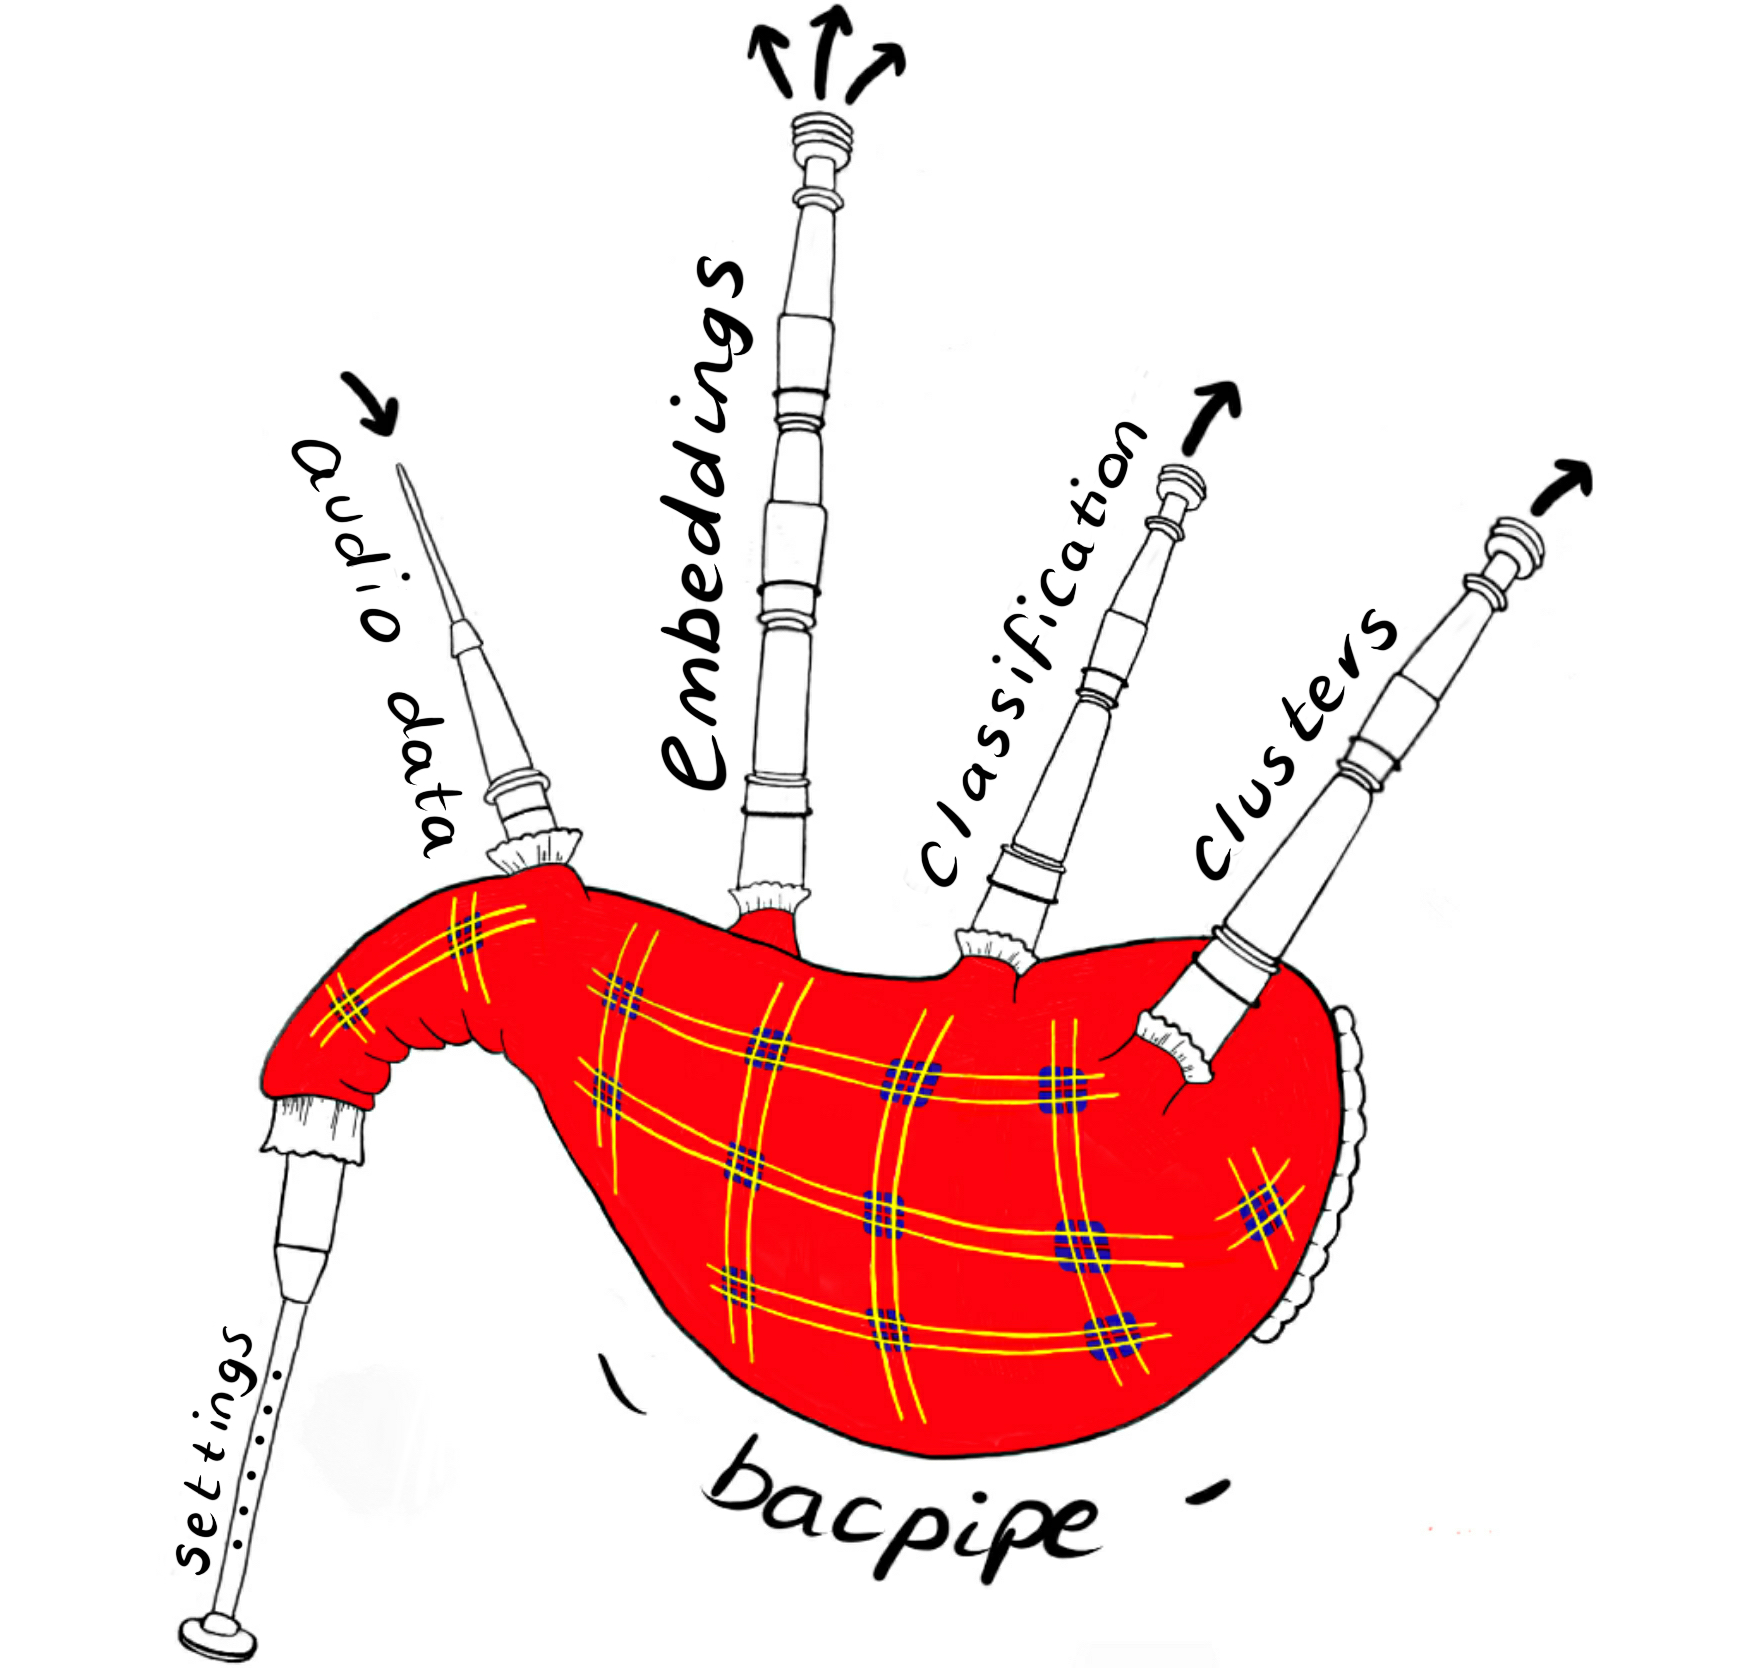 audio data
embeddings
classification
clusters
settings
bacpipe